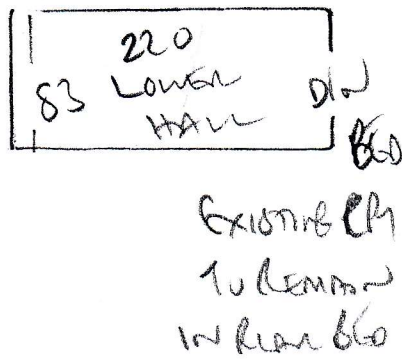 220
83 LOWER DIN
HALL
BED
EXISTING CPT
TO REMAIN
IN REAR BED